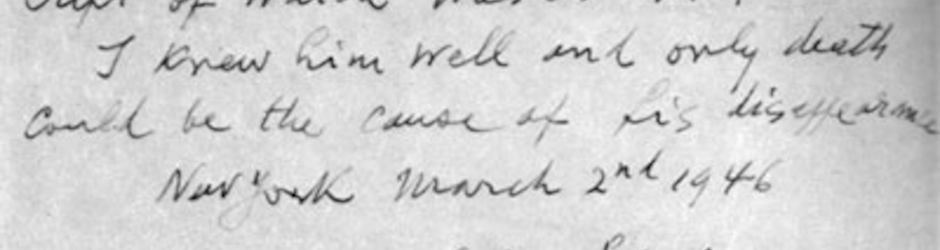 I knew him well and only death
could be the cause of his disappearance
New York March 2nd 1946